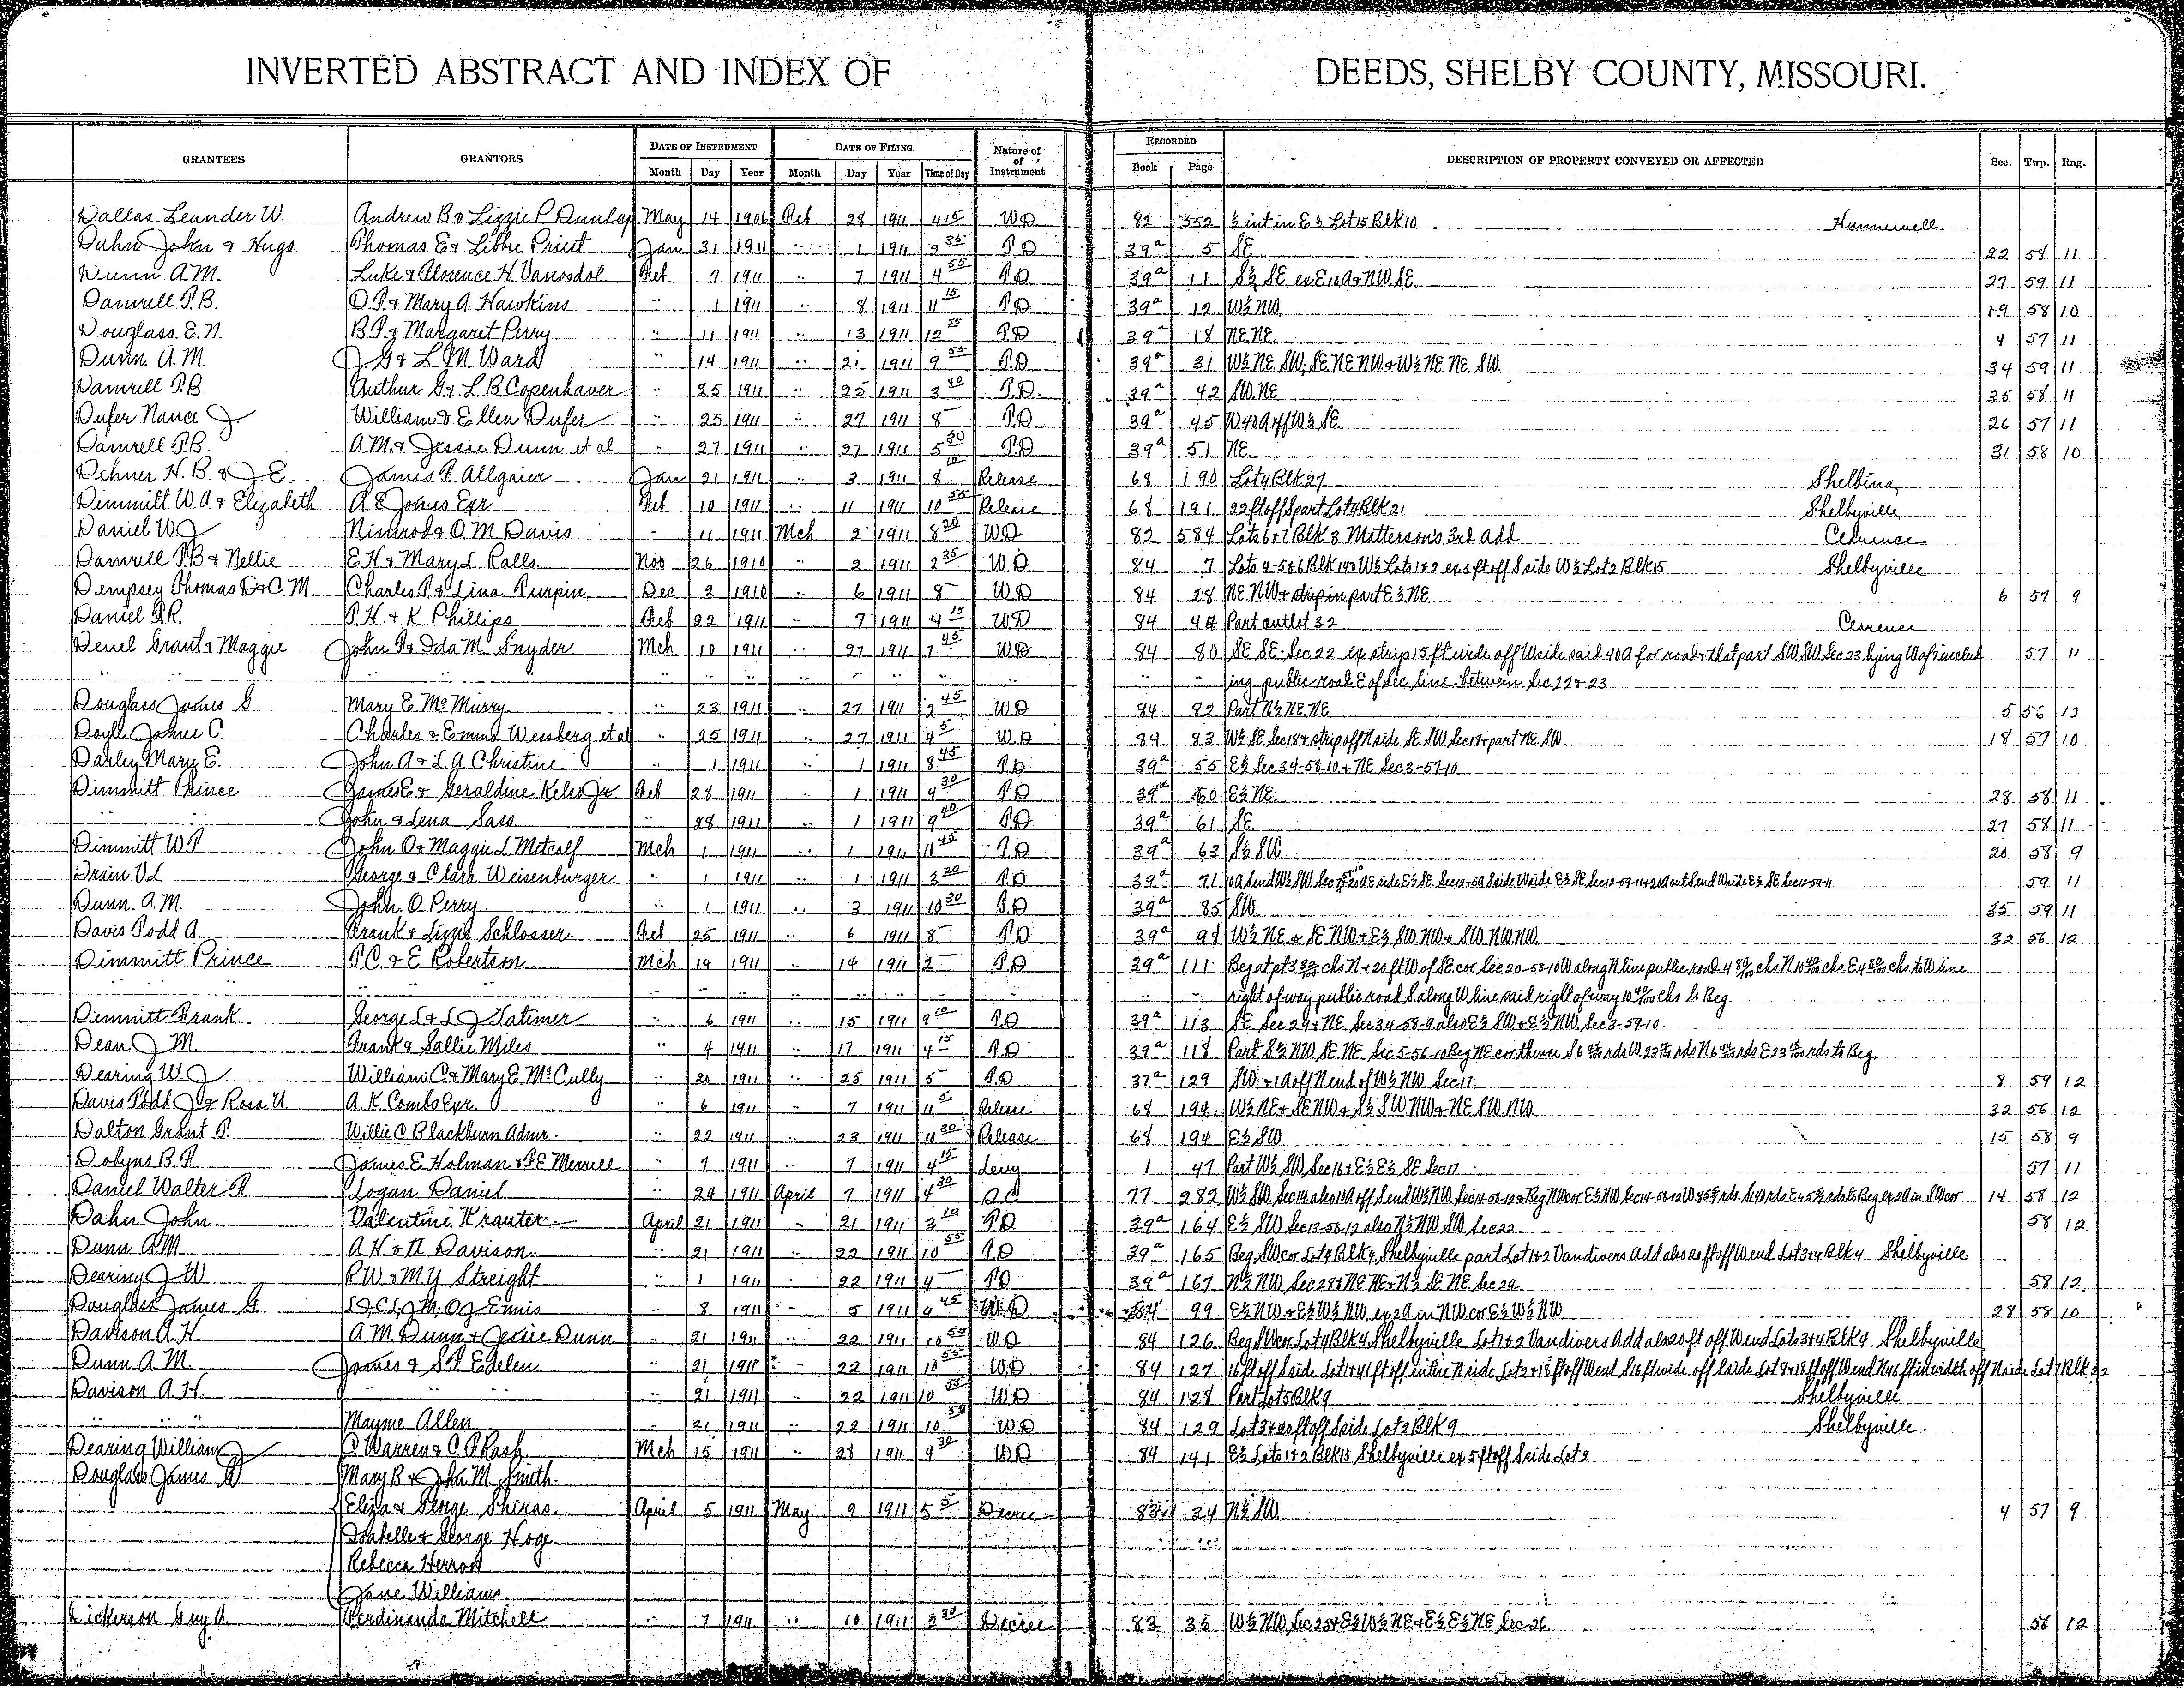 INVERTED ABSTRACT AND INDEX OF DEEDS, SHELBY COUNTY, MISSOURI.
DATE OF INSTRUMENT DATE OF FILING Nature of RECORDED
GRANTEES GRANTORS of DESCRIPTION OF PROPERTY CONVEYED OR AFFECTED Sec. Twp. Rng.
Month Day Year Month Day Year Time of Day Instrument Book Page
Dallas Leander W. Andrew B & Lizzie P. Dunlap May 14 1906 Feb 28 1911 4 15 WD 82 552 ½ int in E½ Lot 15 Blk 10 Hunnewell
Dahn John & Hugo Thomas E & Libbie Priest Jan 31 1911 " 1 1911 2 35 TD 39a 5 SE 22 58 11
Dunn A.M. Luke & Florence H. Vanosdol Feb 7 1911 " 7 1911 4 55 TD 39a 11 S½ SE ex E 10 A & NW SE 27 59 11
Damrell T.B. D.P. & Mary A. Hawkins " 1 1911 " 8 1911 11 15 TD 39a 12 W½ NW 19 58 10
Douglass. E.N. B.F. & Margaret Perry " 11 1911 " 13 1911 12 55 TD 39a 18 NE.NE. 4 57 11
Dunn. A.M. J.G & L M Ward " 14 1911 " 21 1911 9 55 TD 39a 31 W½ NE SW, SE NE NW & W½ NE NE SW. 34 59 11
Damrell T.B Arthur G & L B Copenhaver " 25 1911 " 25 1911 3 40 T.D. 39a 42 SW.NE 35 58 11
Dufer Nance J. William & Ellen Dufer " 25 1911 " 27 1911 8 – TD 39a 45 W 40 A off W½ SE 26 57 11
Damrell T.B. A.M. & Jessie Dunn et al " 27 1911 " 27 1911 5 50 TD 39a 51 NE 31 58 10
Dehner H. B. & J E. James F. Allgaier Jan 21 1911 " 3 1911 8 10 Release 68 190 Lot 4 Blk 27 Shelbina
Dimmitt W.A. & Elizabeth A E Jones Exr Feb 10 1911 " 11 1911 10 55 Release 68 191 22 ft off S part Lot 4 Blk 21 Shelbyville
Daniel W J Nimrod & O.M. Davis " 11 1911 Mch 2 1911 8 20 WD 82 584 Lots 6 & 7 Blk 3 Matterson's 3rd add Clarence
Damrell T.B & Nellie E H & Mary L Ralls Nov 26 1910 " 2 1911 2 35 WD 84 7 Lots 4-5 & 6 Blk 14 & W½ Lots 1 & 2 ex 5 ft off S side W½ Lot 2 Blk 15 Shelbyville
Dempsey Thomas D & C.M. Charles P & Lina Turpin Dec 2 1910 " 6 1911 8 – WD 84 28 NE.NW & strip in part E½ NE. 6 57 9
Daniel P.R. P.H & K Phillips Feb 22 1911 " 7 1911 4 15 WD 84 44 Part outlot 32 Clarence
Denel Grant & Maggie John P & Ida M Snyder Mch 10 1911 " 27 1911 7 45 WD 84 80 SE SE. Sec 22 ex strip 15 ft wide off W side said 40 A for road & that part SW.SW. Sec 23 lying W of & includ 57 11
" " " " " " " " " " " ing public road E of Sec line between Sec 22 & 23
Douglass James G. Mary E. McMurry " 23 1911 " 27 1911 2 45 WD 84 82 Part N½ NE.NE 5 56 13
Doyle James C. Charles & Emma Wessberg et al " 25 1911 " 27 1911 4 5 WD 84 83 W½ SE Sec 18 & strip off N side SE SW Sec 18 & part NE SW. 18 57 10
Darley Mary E. John A & L.A. Christine " 1 1911 " 1 1911 8 45 TD 39a 55 E½ Sec 34-58-10 & NE Sec 3-57-10
Dimmitt Prince James E & Geraldine Kelso Jr Feb 28 1911 " 1 1911 9 30 TD 39a 60 E½ NE. 28 58 11
" " John & Lena Sass " 28 1911 " 1 1911 9 40 TD 39a 61 SE 27 58 11
Dimmitt W P John O & Maggie L Metcalf Mch 1 1911 " 1 1911 11 45 TD 39a 63 S½ SW 20 58 9
Drain V L George & Clara Weisenburger " 1 1911 " 1 1911 3 20 TD 39a 71 59 11
Dunn. A.M. John O Perry " 1 1911 " 3 1911 10 30 TD 39a 85 SW 35 59 11
Davis Todd A. Frank & Lizzie Schlosser. Feb 25 1911 " 6 1911 8 – TD 39a 98 W½ NE & SE NW & E½ SW NW & SW NW NW 32 56 12
Dimmitt Prince P.C. & E Robertson Mch 14 1911 " 14 1911 2 – TD 39a 111 Beg at pt 3 chs N & 20 ft W of SE cor Sec 20-58-10 W along N line public road 4 80/100 chs N 10 40/100 chs. E 4 80/100 chs. to W line
" " " " " " " " " " " right of way public road S along W line said right of way 10 40/100 chs to Beg.
Dimmitt Frank George L & L J Latimer " 6 1911 " 15 1911 9 20 TD 39a 113 SE Sec 29 & NE Sec 34-58-9 also E½ SW & E½ NW. Sec 3-59-10
Dean J M. Frank & Sallie Miles " 4 1911 " 17 1911 4 15 TD 39a 118 Part S½ NW SE NE Sec 5-56-10 Beg NE cor thence S 6 rds W 23 rds N 6 rds E 23 rds to Beg.
Dearing W J William C & Mary E. McCully " 20 1911 " 25 1911 5 – TD 37a 129 SW. & 1 A off N end of W½ NW Sec 17. 8 59 12
Davis Todd J & Rosa U A. K Combs Exr " 6 1911 " 7 1911 11 5 Release 68 194 W½ NE & SE NW & S½ SW NW & NE SW NW 32 56 12
Dalton Grant P. Willie C Blackburn Admr. " 22 1911 " 23 1911 11 30 Release 68 194 E½ SW 15 58 9
Dobyns B F James E Holman & F E Merrill " 7 1911 " 7 1911 4 15 Levy 1 47 Part W½ SW Sec 16 & E½ E½ SE Sec 17 57 11
Daniel Walter P Logan Daniel " 24 1911 April 7 1911 4 30 QC 77 282 14 58 12
Dahn John. Valentine Krauter April 21 1911 " 21 1911 3 10 TD 39a 164 E½ SW Sec 13-58-12 also N½ NW SW Sec 22 58 12.
Dunn A M A H & N Davison. " 21 1911 " 22 1911 10 55 TD 39a 165 Beg SW cor Lot 4 Blk 4, Shelbyville part Lot 1 & 2 Vandivers Add also 20 ft off W end Lot 3 & 4 Blk 4 Shelbyville.
Dearing J W R W & M Y Streight " 1 1911 " 22 1911 4 – TD 39a 167 N½ NW Sec 28 & NE NE & N½ SE NE Sec 29 58 12.
Douglass James G Ennis " 8 1911 " 5 1911 4 45 WD 84 99 E½ NW & E½ W½ NW ex 2 A in NW cor E½ W½ NW 28 58 10
Davison A H. A M Dunn & Jessie Dunn " 21 1911 " 22 1911 10 55 WD 84 126 Beg SW cor Lot 4 Blk 4 Shelbyville Lot 1 & 2 Vandivers Add also 20 ft off W end Lots 3 & 4 Blk 4 Shelbyville
Dunn A M. James & S.P Edelen " 21 1911 " 22 1911 10 55 WD 84 127 16 ft off S side Lot 1 & 41 ft off entire N side Lot 2 & 18 ft off W end S 16 ft wide off S side Lot 8 & 18 ft off W end N 46 ft in width off N side Lot 7 Blk 22
Davison A.H. " " " " 21 1911 " 22 1911 10 55 WD 84 128 Part Lot 5 Blk 9 Shelbyville
" " " Mayme Allen " 21 1911 " 22 1911 10 50 WD 84 129 Lot 3 & 20 ft off S side Lot 2 Blk 9 Shelbyville.
Dearing William J C. Warren & C. P Rash Mch 15 1911 " 28 1911 4 30 WD 84 141 E½ Lots 1 & 2 Blk 15 Shelbyville ex 5 ft off S side Lot 2
Douglass James G Mary B & John M Smith.
Eliza & George Shiras. April 5 1911 May 9 1911 5 5 Decree 83 34 N½ SW. 4 57 9
Isabelle & George Hoge
Rebecca Herron
Jane Williams
Dickerson Guy A. Ferdinando Mitchell " 7 1911 " 10 1911 2 30 Decree 83 35 W½ NW Sec 25 & E½ W½ NE & E½ E½ NE Sec 26. 58 12